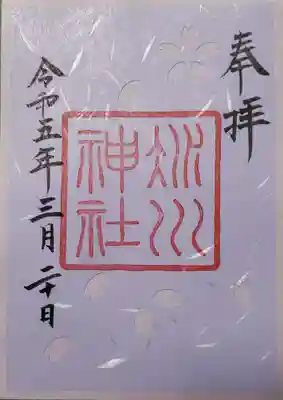 奉拝
冰川
神社
令和五年三月二十日